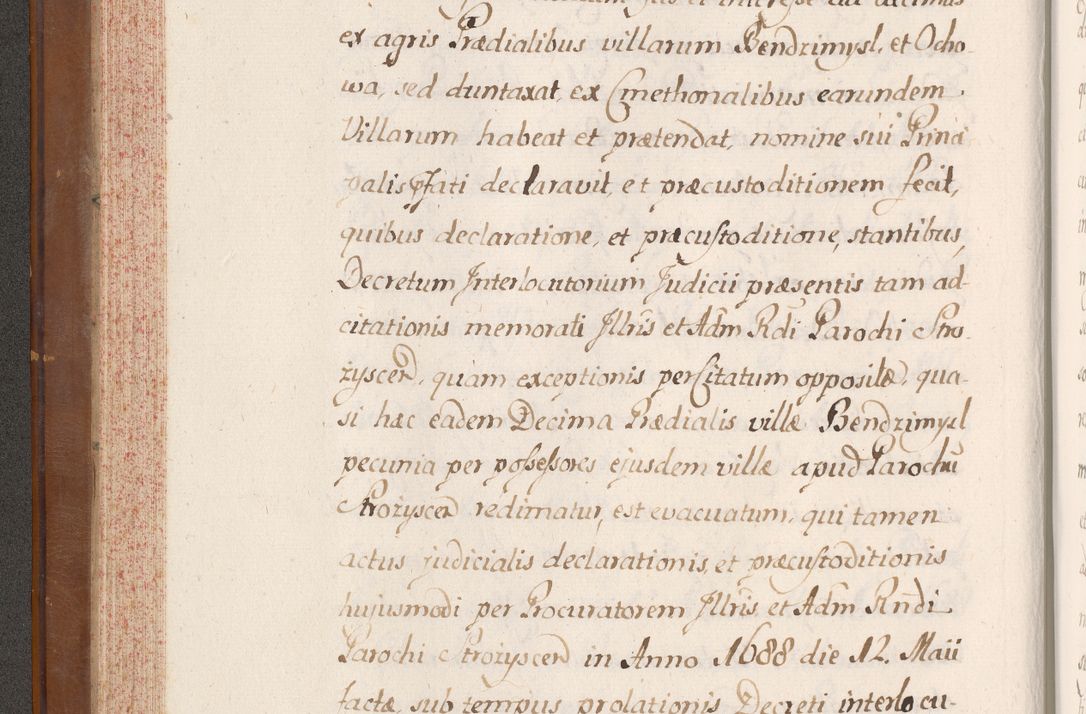 ex agris Prædialibus villarum Bendzimysl, et Ocho-
wa, sed duntaxat, ex Cmethonalibus earundem
Villarum habeat et prætendat, nomine sui Princi
palis pfati declaravit, et præcustoditionem fecit,
quibus declaratione, et præcustoditione, stantibus,
Decretum Interlocutorium Judicii præsentis tam ad-
citationis memorati Illris et Adm Rdi Parochi Stro-
życen, quam exceptionis per Citatum oppositæ, qua-
si hæc eadem Decima Prædialis villæ Bendzimysl
pecunia per possessores ejusdem villæ apud Parochũ
Strożyscen redimatur, est evacuatum, qui tamen
actus judicialis declarationis et præcustoditionis
hujusmodi per Procuratorem Illris et Adm Rndi
Parochi Strożyscen in Anno 1688 die 12. Maii
factæ, sub tempus prolationis Decreti interlocu-